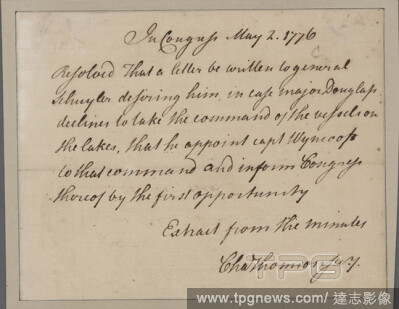 In Congress May 2. 1776
Resolved That a letter be written to general
Schuyler desiring him, in case major Douglass
declines to take the command of the vessels on
the lakes, that he appoint capt Wyncoop
to that command and inform Congress
thereof by the first opportunity
Extract from the minutes
Cha Thomson secy.
TPG
www.tpgnews.com / 達志影像